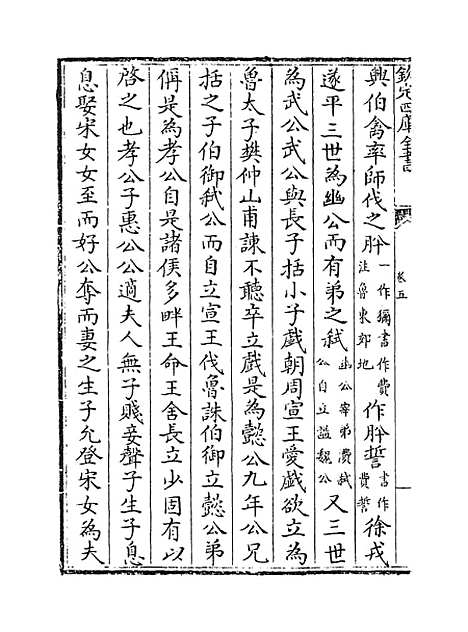 欽定四庫全書 卷五
興伯禽率師伐之肸一作獮書作費注魯東郊地作肸誓書作費誓徐戎
遂平三世為幽公而有弟之弑幽公宰弟潰弑公自立謚魏公又三世
為武公武公與長子括小子戲朝周宣王愛戲欲立為
魯太子樊仲山甫諫不聽卒立戲是為懿公九年公兄
括之子伯御弑公而自立宣王伐魯誅伯御立懿公弟
偁是為孝公自是諸侯多畔王命王舍長立少固有以
啓之也孝公子惠公公適夫人無子賤妾聲子生子息
息娶宋女女至而好公奪而妻之生子允登宋女為夫